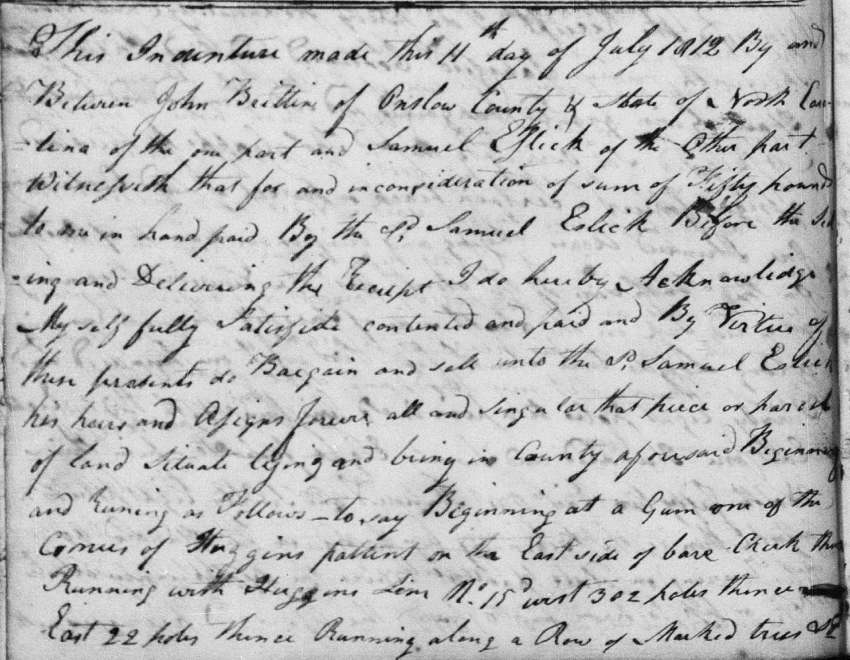 This Indenture made this 11th day of July 1812 By and
Between John Brittin of Onslow County & State of North Car-
-lina of the one part and Samuel Eslick of the Other part
Witnesseth that for and inconsideration of sum of Fifty pounds
to me in hand paid By the sd. Samuel Eslick Before the Seal
-ing and Delivering the Receipt I do hereby Acknowlidge
My self fully Satisfide contented and paid and By Virtue of
these presents do Bargain and sell unto the sd. Samuel Eslick
his heirs and Asigns forever all and singular that piece or parcel
of land Situate lying and being in County aforesaid Beginning
and Runing as Follows - to say Beginning at a Gum one of the
Corners of Huggins pattent on the East side of bare Creek then
Running with Huggins Line No. 15d west 302 poles thence
East 22 poles thence Running along a Row of Marked trees